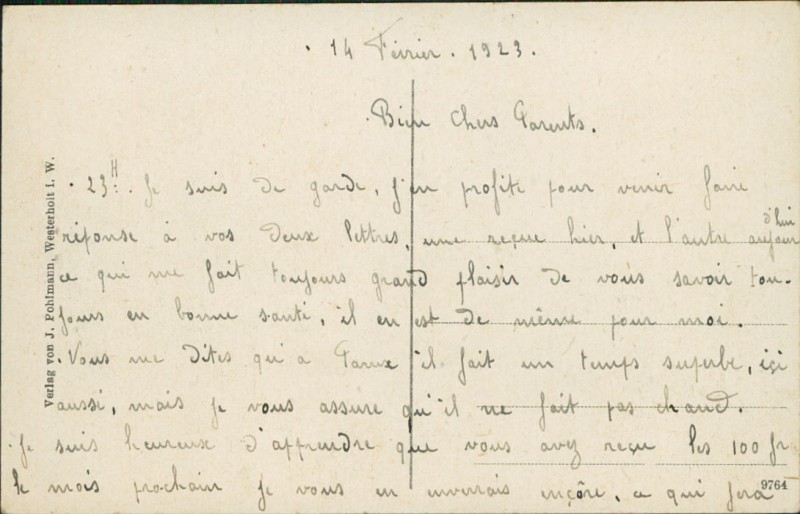 . 14 Février . 1923 .
Bien chers Parents.
. 23H. Je suis de garde, j'en profite pour venir faire
réponse à vos deux lettres, une reçue hier, et l'autre aujourd'hui
ce qui me fait toujours grand plaisir de vous savoir tou-
jours en bonne santé, il en est de même pour moi.
. Vous me dites qu'a Pareux il fait un temps superbe, içi
aussi, mais je vous assure qu'il ne fait pas chaud.
. Je suis heureux d'apprendre que vous avez reçu les 100 fr
le mois prochain je vous en enverrais ençôre, ce qui fera
Verlag von J. Pohlmann, Westerholt I. W.
9764